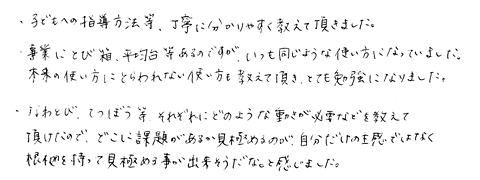 ・子どもへの指導方法等、丁寧に分かりやすく教えて頂きました。
・事業にとび箱、平均台等あるのですが、いつも同じような使い方になっていました。
本来の使い方にとらわれない使い方も教えて頂き、とても勉強になりました。
・なわとび、てつぼう等、それぞれにどのような動きが必要などを教えて
頂けたので、どこに課題があるか見極めるのが、自分だけの主感ではなく
根拠を持って見極める事が出来そうだなと感じました。